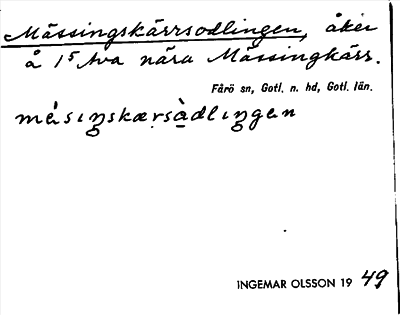 Mässingskärrsodlingen, åker
å 1⁵ Ava nära Mässingkärr.
Fårö sn, Gotl. n. hd, Gotl. län.
mèsiŋskærsàdliŋgən
INGEMAR OLSSON 19 49